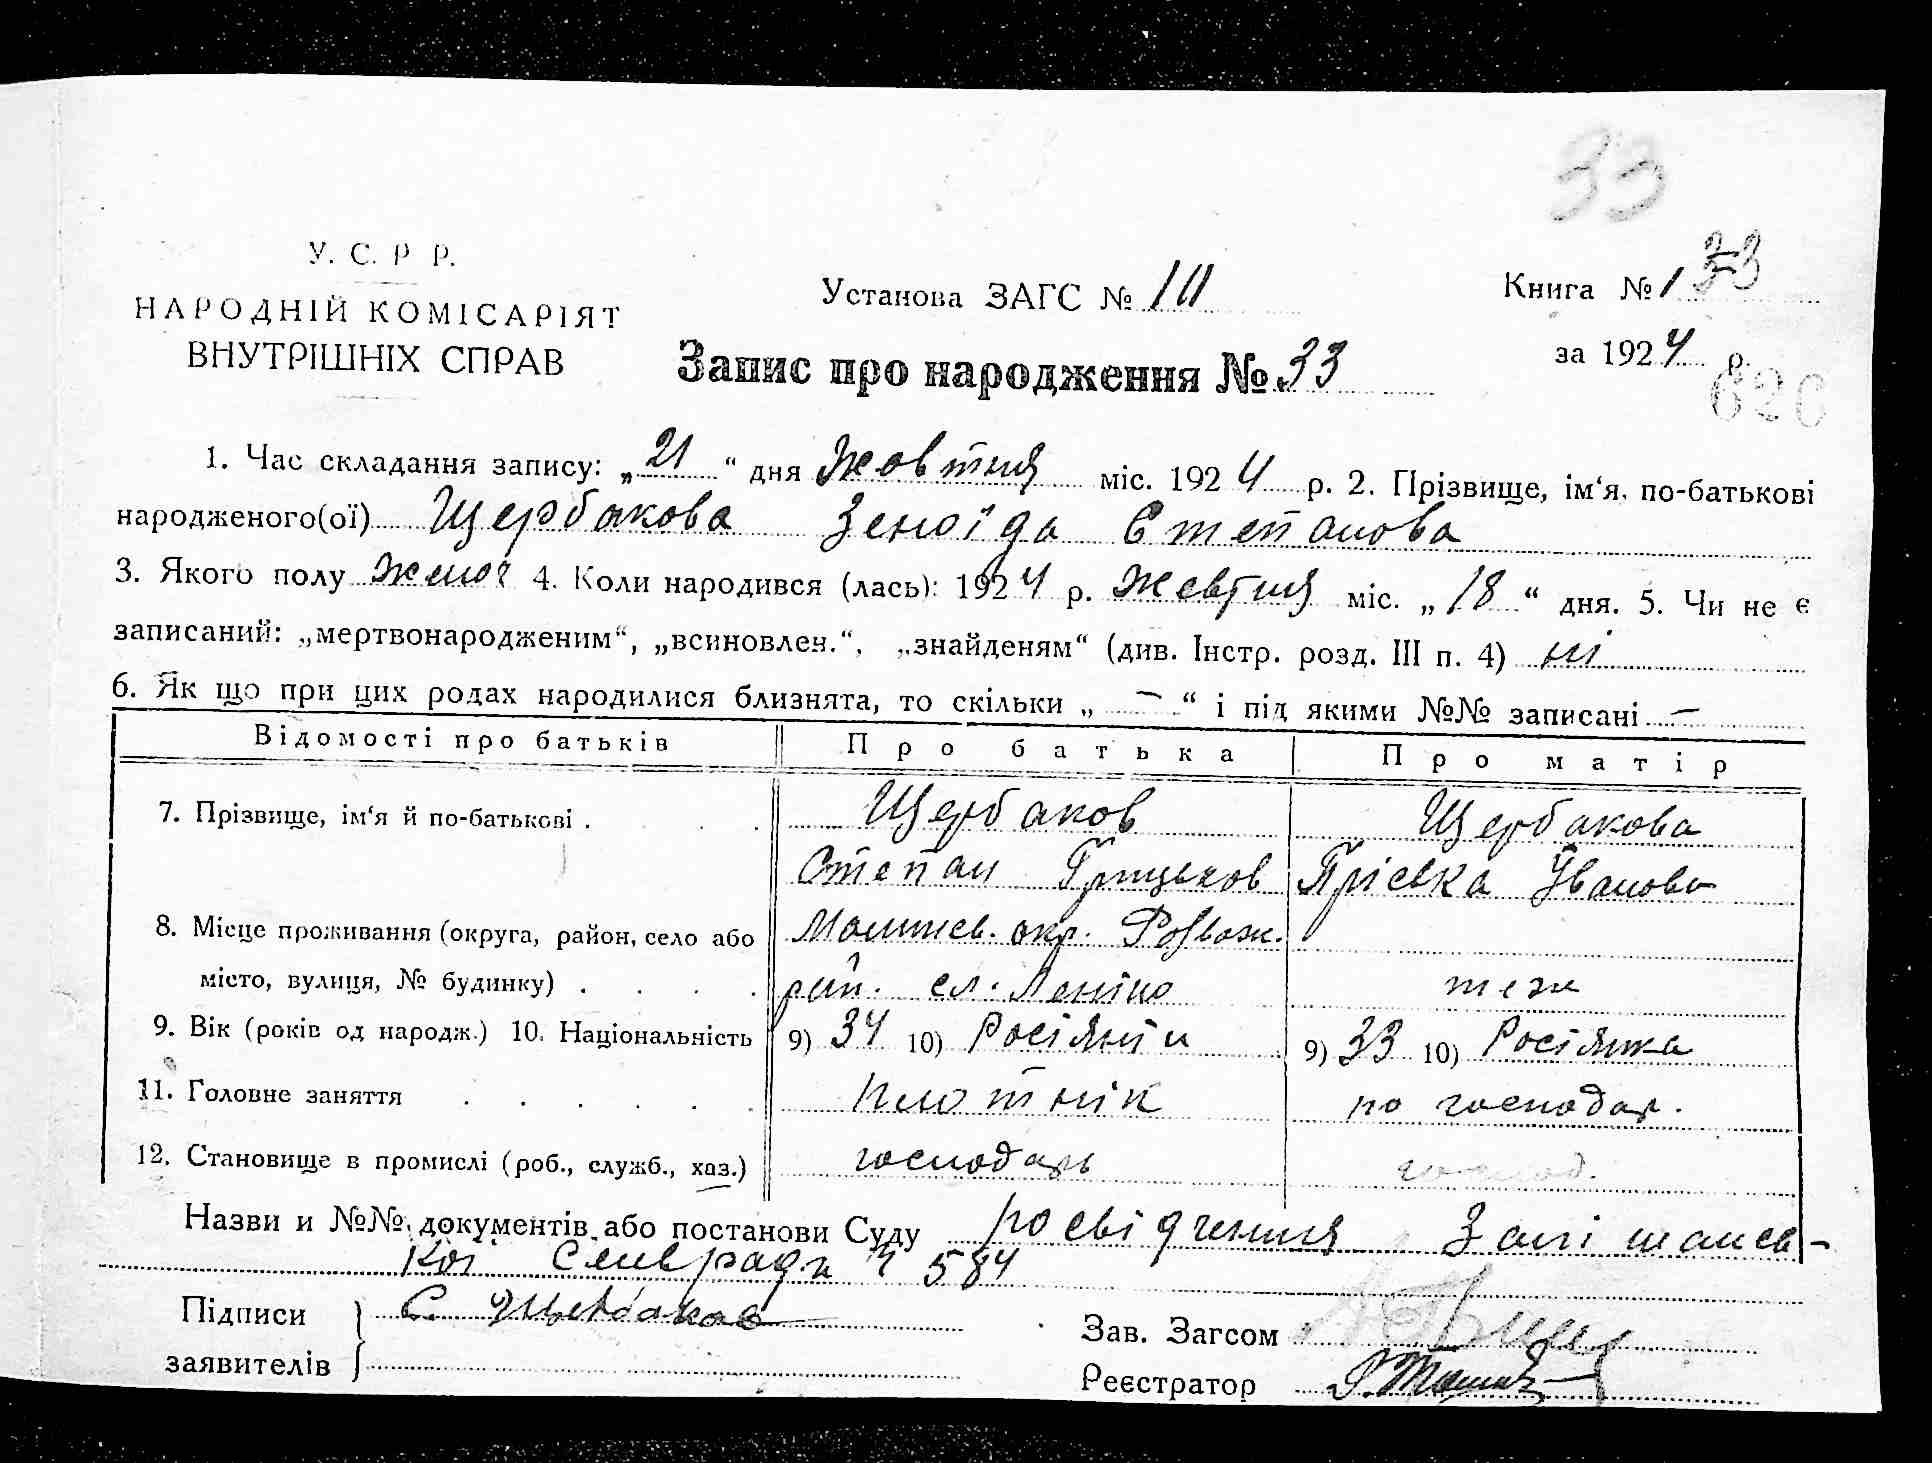 33
У. С. Р Р.
НАРОДНІЙ КОМІСАРІЯТ
ВНУТРІШНІХ СПРАВ
Установа ЗАГС № 111
Книга № 1 33
Запис про народження № 33
за 1924 р.
620
1. Час складання запису: „21“ дня Жовтня міс. 1924 р. 2. Прізвище, ім‘я, по-батькові
народженого(ої) Щербакова Зеноїда Степанова
3. Якого полу женоч 4. Коли народився (лась): 1924 р. Жовтня міс. „18“ дня. 5. Чи не є
записаний: „мертвонародженим“, „всиновлен.“, „знайденям“ (див. Інстр. розд. III п. 4) ні
6. Як що при цих родах народилися близнята, то скільки „ — “ і під якими №№ записані —
Відомості про батьків Про батька Про матір
7. Прізвище, ім‘я й по-батькові . . . . Щербаков Щербакова
Степан Грицьков Пріська Іванова
8. Місце проживання (округа, район, село або Малинсв. окр. Розваж.
місто, вулиця, № будинку) . . . . рай. сл. Леніно теж
9. Вік (років од народж.) 10. Національність 9) 34 10) Росіянін 9) 33 10) Росіянка
11. Головне заняття . . . . . . Плотнік по господар.
12. Становище в промислі (роб., служб., хаз.) господарь господ.
Назви и №№ документів або постанови Суду посвідчення
кої Сельради Ч 584
Підписи С. Щербаков
заявителів
Зав. Загсом
Реєстратор